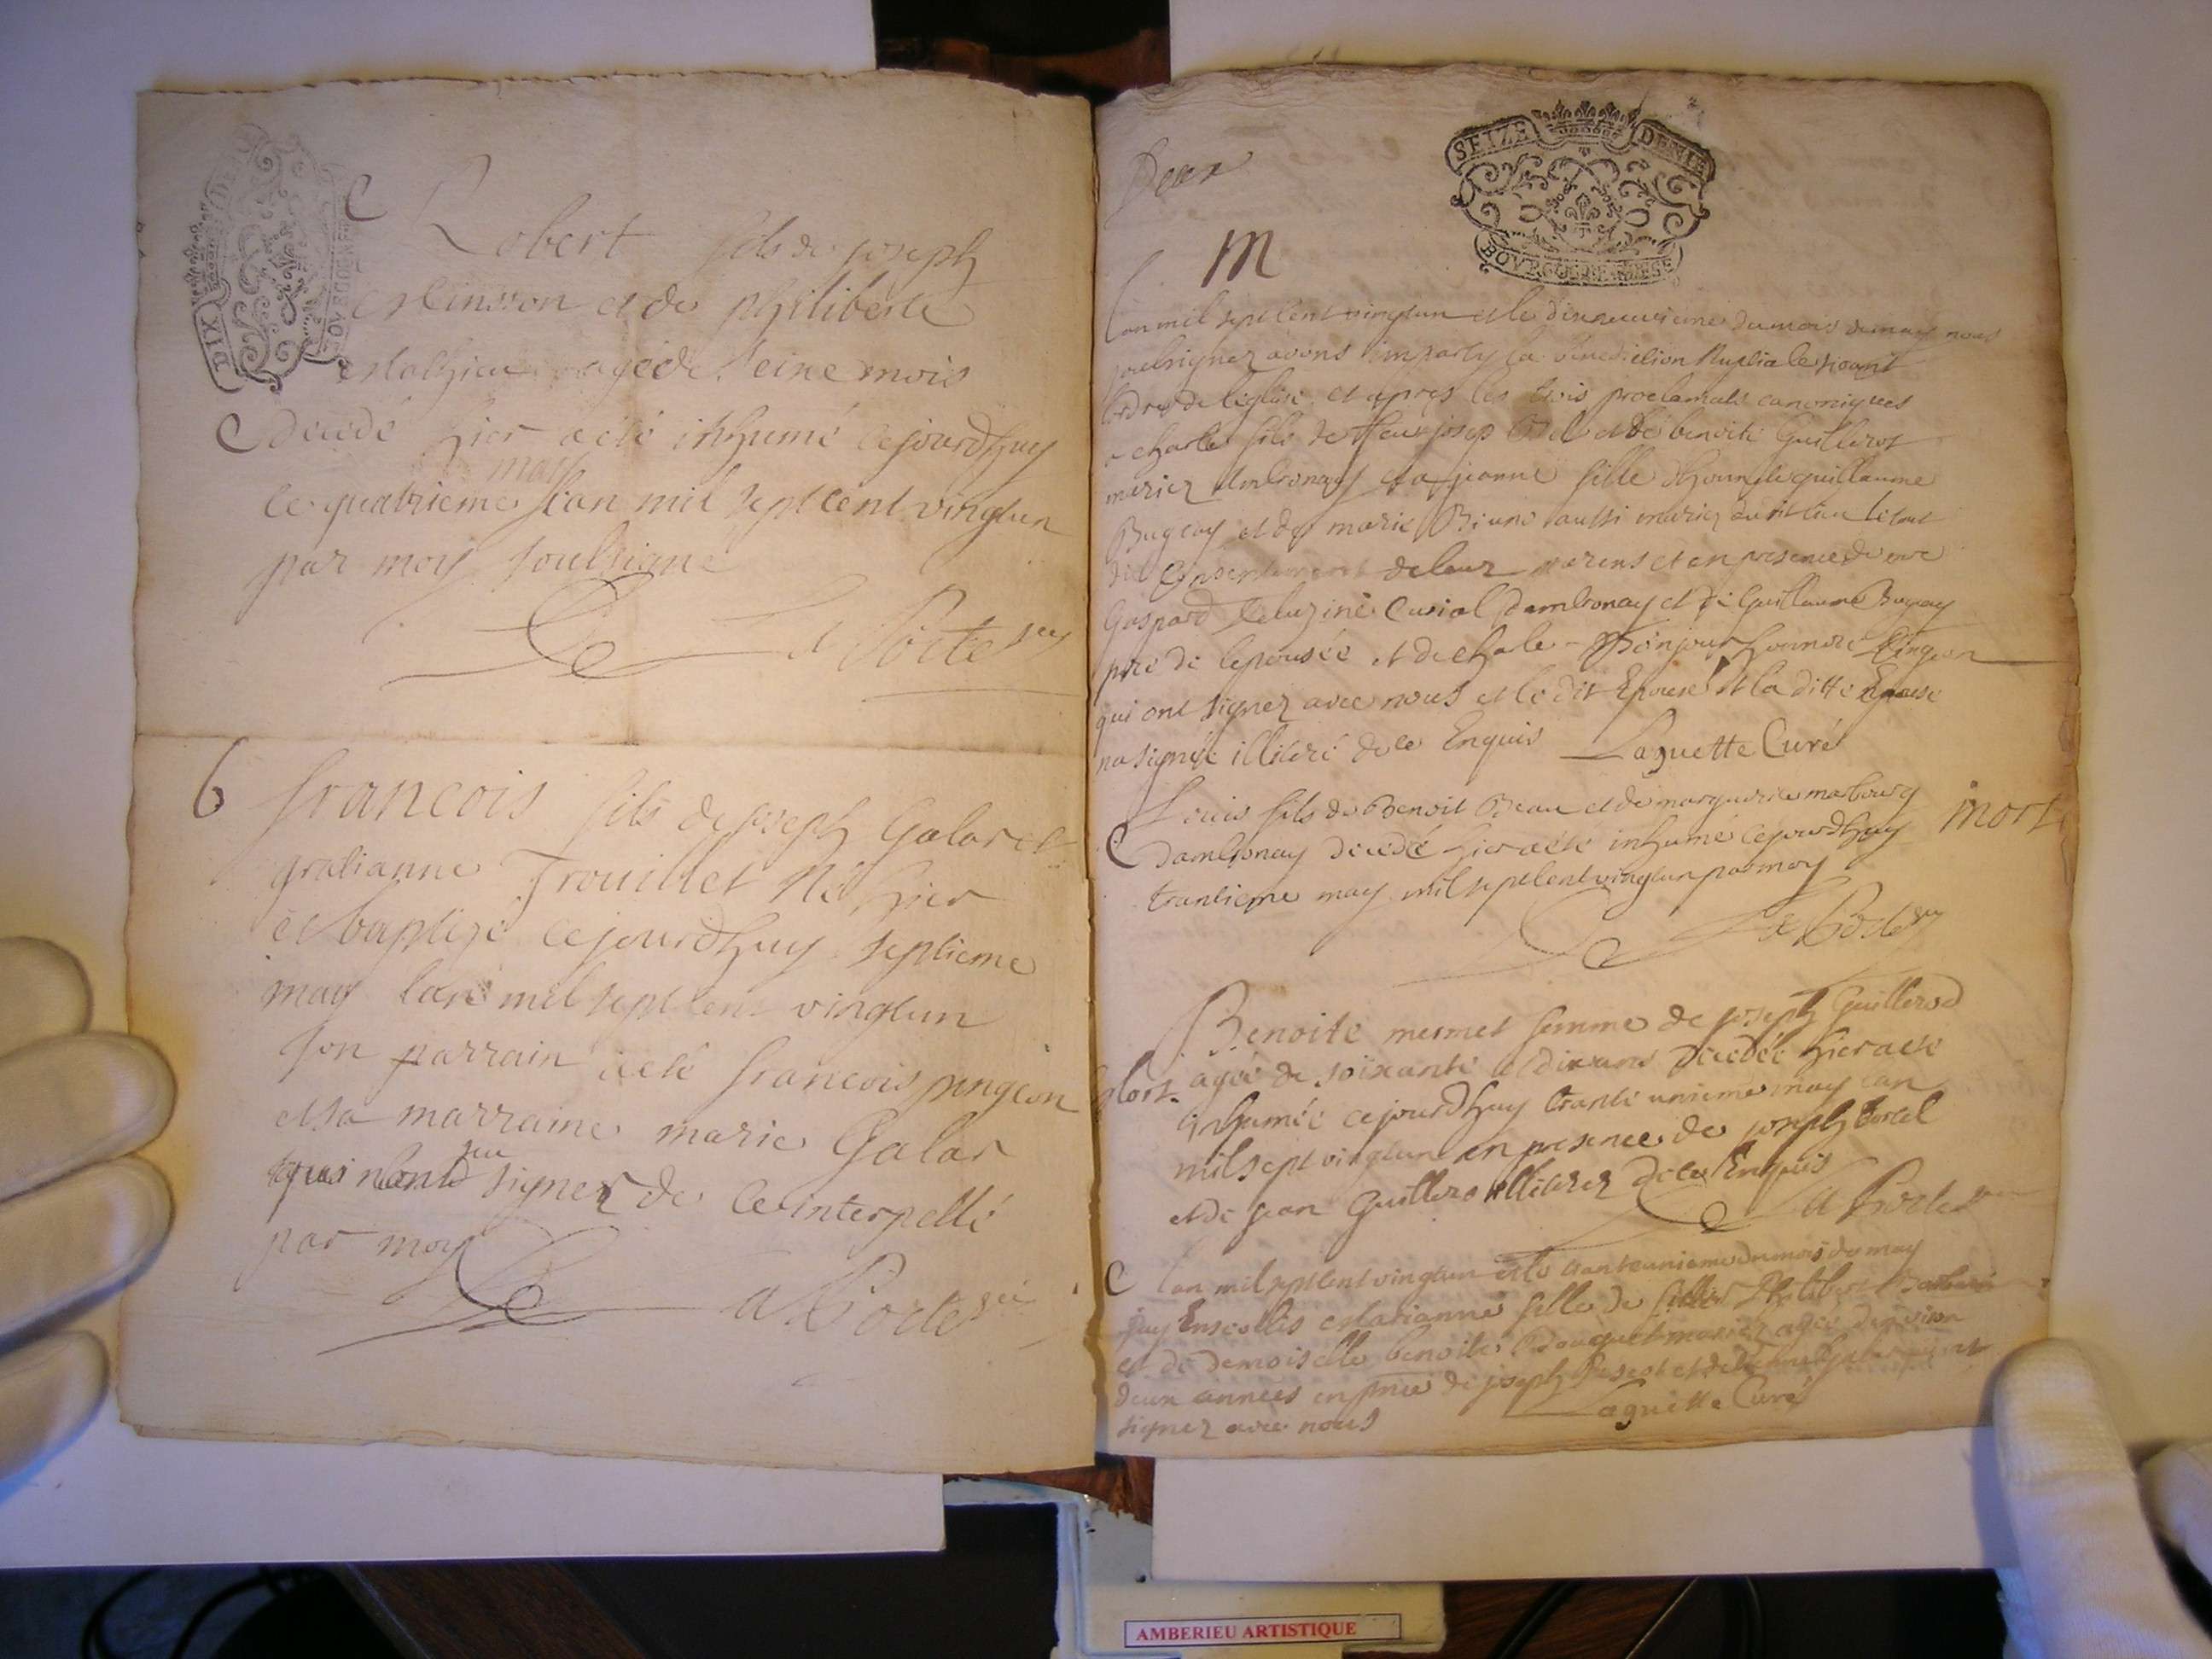 DIX DE
BOURGOGNE
C
Robert fils de joseph
et de philiberte
agé de seize mois
C decedé hier a eté inhumé cejourdhuy
may
le quatrieme lan mil sept cent vingtun
par moy soubsigné
A Porte
6 francois fils de joseph Galar et
Trouillet né hier
et baptizé cejourdhuy septieme
may lan mil sept cent vingtun
son parrain a eté francois pingeon
et sa marraine marie Galar
qui nont sceu signer de ce interpellé
par moy
A Porte
SEIZE DENIE
BOURGOGNE BRESSE
Jean
m
Lan mil sept cent vingtun et le dixneuvieme du mois de may nous
soubsignez avons imparty la benediction Nuptiale
lordre de leglise et apres les trois proclamats canoniques
a charle fils de josep et de benoite Guillerot
mariez Ambronay et a jeanne fille guillaume
Bugeay et de marie aussi mariez dudit lieu le tout
du Consentement de leur parens et en presence de
Gaspard curial dambronay et de Guillaume Bugeay
pere de lepousée et de chale Monjour pingeon
qui ont signez avec nous et le dit Epouse et la ditte Epouse
na signée illiteré de ce Enquis Laguette Curé
Louis fils de Benoit Beau et de
C dambronay decedé hier a eté inhumé cejourdhuy mort
trantieme may mil sept cent vingtun par moy
A Porte
Benoite mermet femme de joseph Guillerod
agée de soixante et dix ans decedée hier a eté
inhumée cejourdhuy trante unieme may lan
mil sept vingtun en presence de joseph
et de jean Guillero illiterez de ce Enquis
A Porte
C lan mil sept cent vingtun et le trante unieme du mois de may
jay Enseveli marianne fille de Philibert
et de demoiselle benoite mariez agée denviron
deux années en pnce de joseph et de
signez avec nous Laguette Curé
AMBERIEU ARTISTIQUE